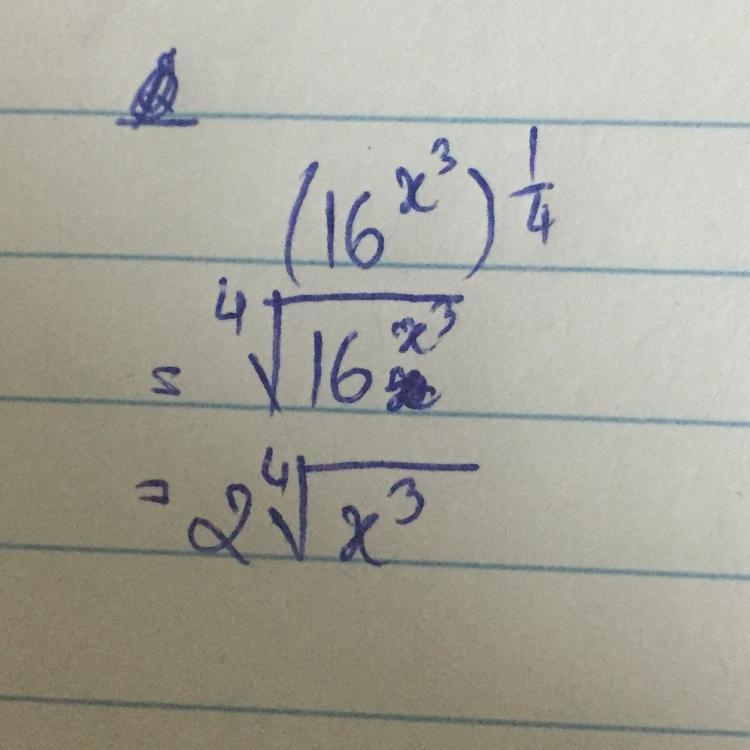 (16^{x^3})^{\frac{1}{4}}
= \sqrt[4]{16^{x^3}}
= 2\sqrt[4]{x^3}